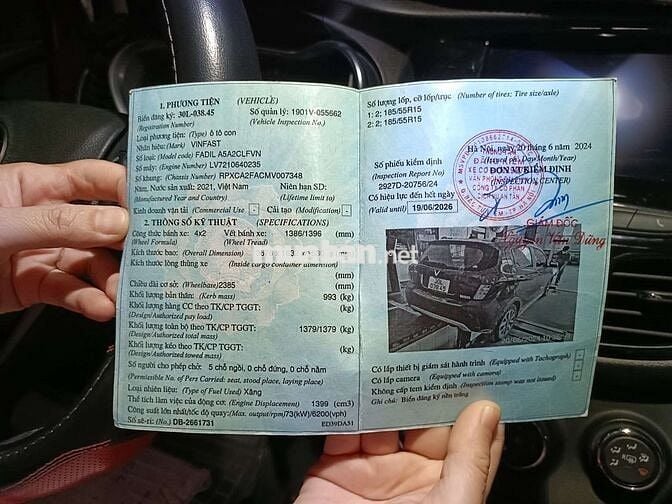 1. PHƯƠNG TIỆN (VEHICLE)
Biển đăng ký: 30L-038.45 Số quản lý: 1901V-055662
(Registration Number) (Vehicle Inspection No.)
Loại phương tiện: (Type) ô tô con
Nhãn hiệu: (Mark) VINFAST
Số loại: (Model code) FADIL A5A2CLFVN
Số máy: (Engine Number) LV7210640235
Số khung: (Chassis Number) RPXCA2FACMV007348
Năm, Nước sản xuất: 2021, Việt Nam Niên hạn SD:
(Manufactured Year and Country) (Lifetime limit to)
Kinh doanh vận tải (Commercial Use) - Cải tạo (Modification) -
2. THÔNG SỐ KỸ THUẬT (SPECIFICATIONS)
Công thức bánh xe: 4x2 Vết bánh xe: 1386/1396 (mm)
(Wheel Formula) (Wheel Tread)
Kích thước bao: (Overall Dimension) (mm)
Kích thước lòng thùng xe (Inside cargo container dimension)
(mm)
Chiều dài cơ sở: (Wheelbase) 2385 (mm)
Khối lượng bản thân: (Kerb mass) 993 (kg)
Khối lượng hàng CC theo TK/CP TGGT: (kg)
(Design/Authorized pay load)
Khối lượng toàn bộ theo TK/CP TGGT: 1379/1379 (kg)
(Design/Authorized total mass)
Khối lượng kéo theo TK/CP TGGT: (kg)
(Design/Authorized towed mass)
Số người cho phép chở: 5 chỗ ngồi, 0 chỗ đứng, 0 chỗ nằm
(Permissible No. of Pers Carried: seat, stood place, laying place)
Loại nhiên liệu: (Type of Fuel Used) Xăng
Thể tích làm việc của động cơ: (Engine Displacement) 1399 (cm3)
Công suất lớn nhất/tốc độ quay: (Max. output/rpm) 73(kW)/6200(vph)
Số sê-ri: (No.) DB-2661731 ED39DA31
Số lượng lốp, cỡ lốp/trục (Number of tires: Tire size/axle)
1: 2; 185/55R15
2: 2; 185/55R15
Hà Nội, ngày 20 tháng 6 năm 2024
(Issued on: Day/Month/Year)
Số phiếu kiểm định ĐƠN VỊ KIỂM ĐỊNH
(Inspection Report No) (INSPECTION CENTER)
2927D-20756/24
Có hiệu lực đến hết ngày
(Valid until) 19/06/2026
GIÁM ĐỐC
Nguyễn Văn Dũng
nhatot.net
Có lắp thiết bị giám sát hành trình (Equipped with Tachograph) -
Có lắp camera (Equipped with camera) -
Không cấp tem kiểm định (Inspection stamp was not issued) -
Ghi chú: Biển đăng ký nền trắng